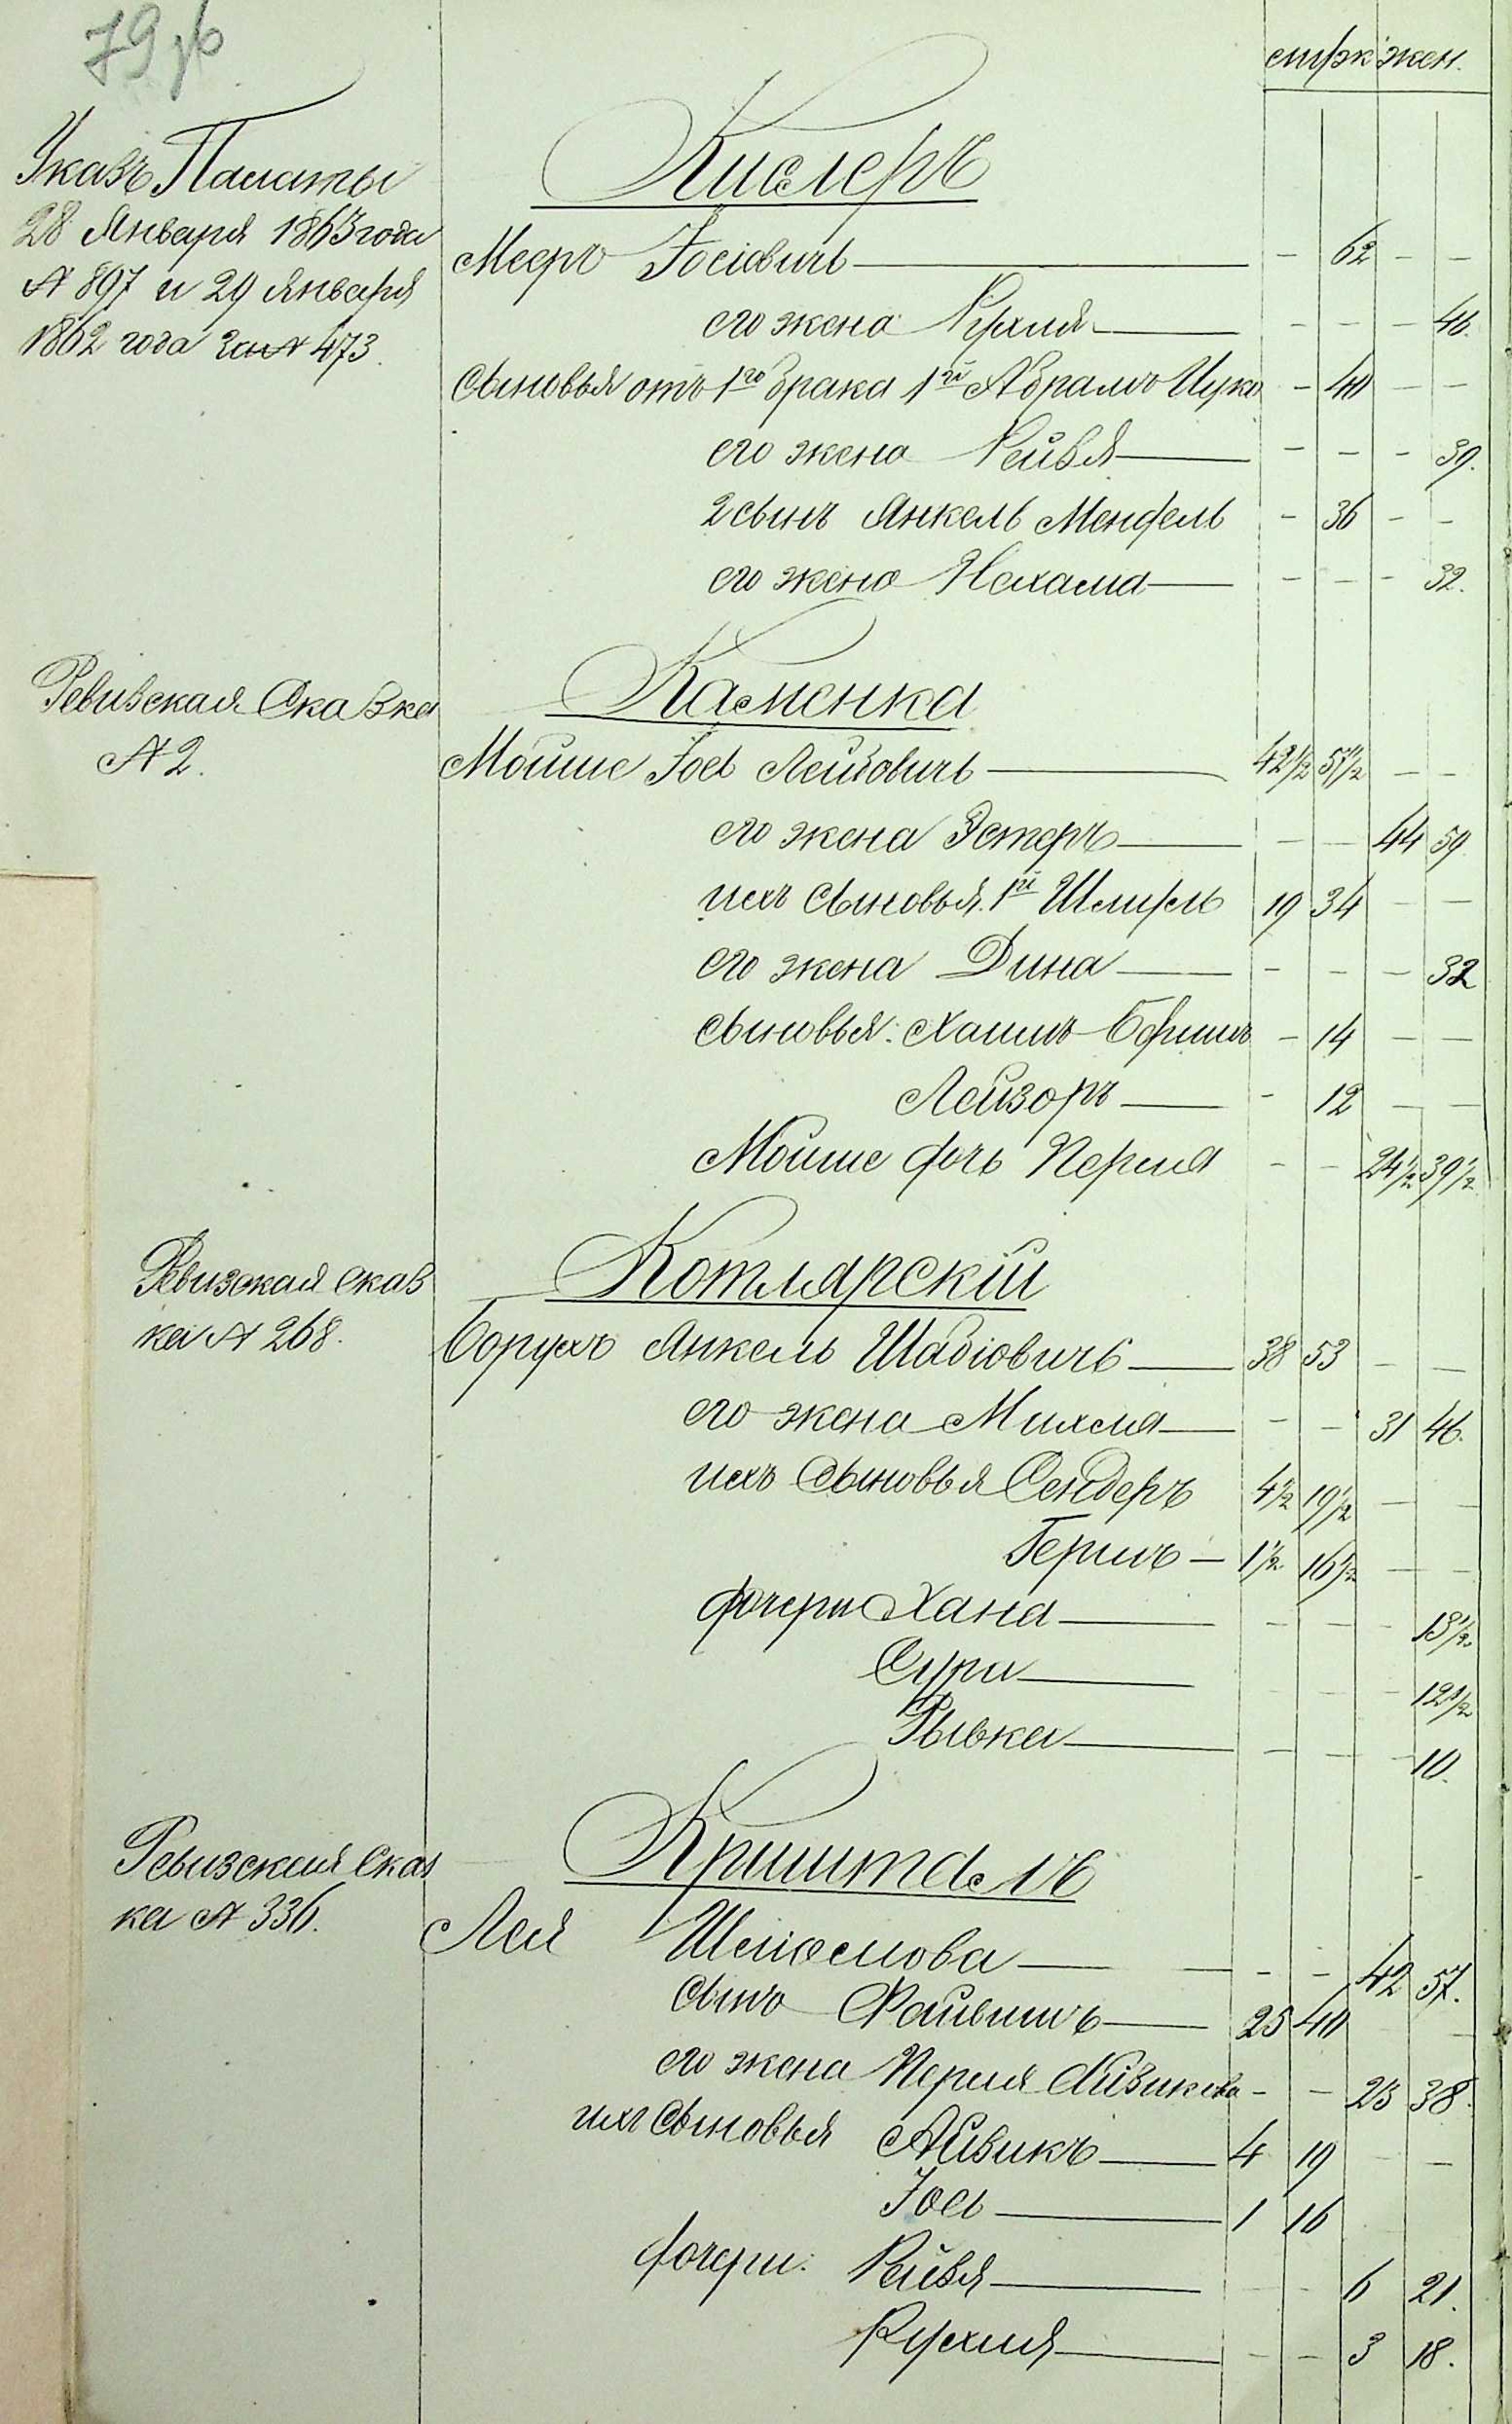 79 об
муж жен.
Кислеръ
Указъ Палаты
28 Января 1863 года
№ 897 и 29 Января
1862 года за № 473.
Мееръ Іосіовичъ — - 62 - -
его жена Рухля — - - - 46.
Сыновья отъ 1го брака 1й Абрамъ Ицко - 40 - -
его жена Рейзя — - - - 39.
2 сынъ Янкель Мендель - 36 - -
его жена Нехама — - - - 32.
Каменка
Ревизская Сказка
№ 2.
Мойше Іось Лейзовичъ — 42½ 57½ - -
его жена Эстеръ — - - 44 59
ихъ сыновья 1й Шлиумъ 19 34 - -
его жена Дина — - - - 32
сыновья: Хаимъ Ефимъ - 14 - -
Лейзоръ — - 12 - -
Мойше дочь Перля - - 24½ 39½
Котлярскій
Ревизская сказ
ка № 268.
Борухъ Янкель Шабіовичъ — 38 53 - -
его жена Михля — - - 31 46.
ихъ сыновья Сендеръ 4½ 19½ - -
Гершъ — 1½ 16½ - -
дочери Хана — - - - 13½
Сура — - - - 12½
Рывка — - - - 10.
Криштаlъ
Ревизская сказ
ка № 336.
Лея Шліомова — - - 42 57.
сынъ Файвишъ — 25 40 -
его жена Перля Айзикова - - 23 38.
ихъ сыновья Айзикъ — 4 19 - -
Іось — 1 16
дочери: Рейзя — - - 6 21.
Рухля — - - 3 18.